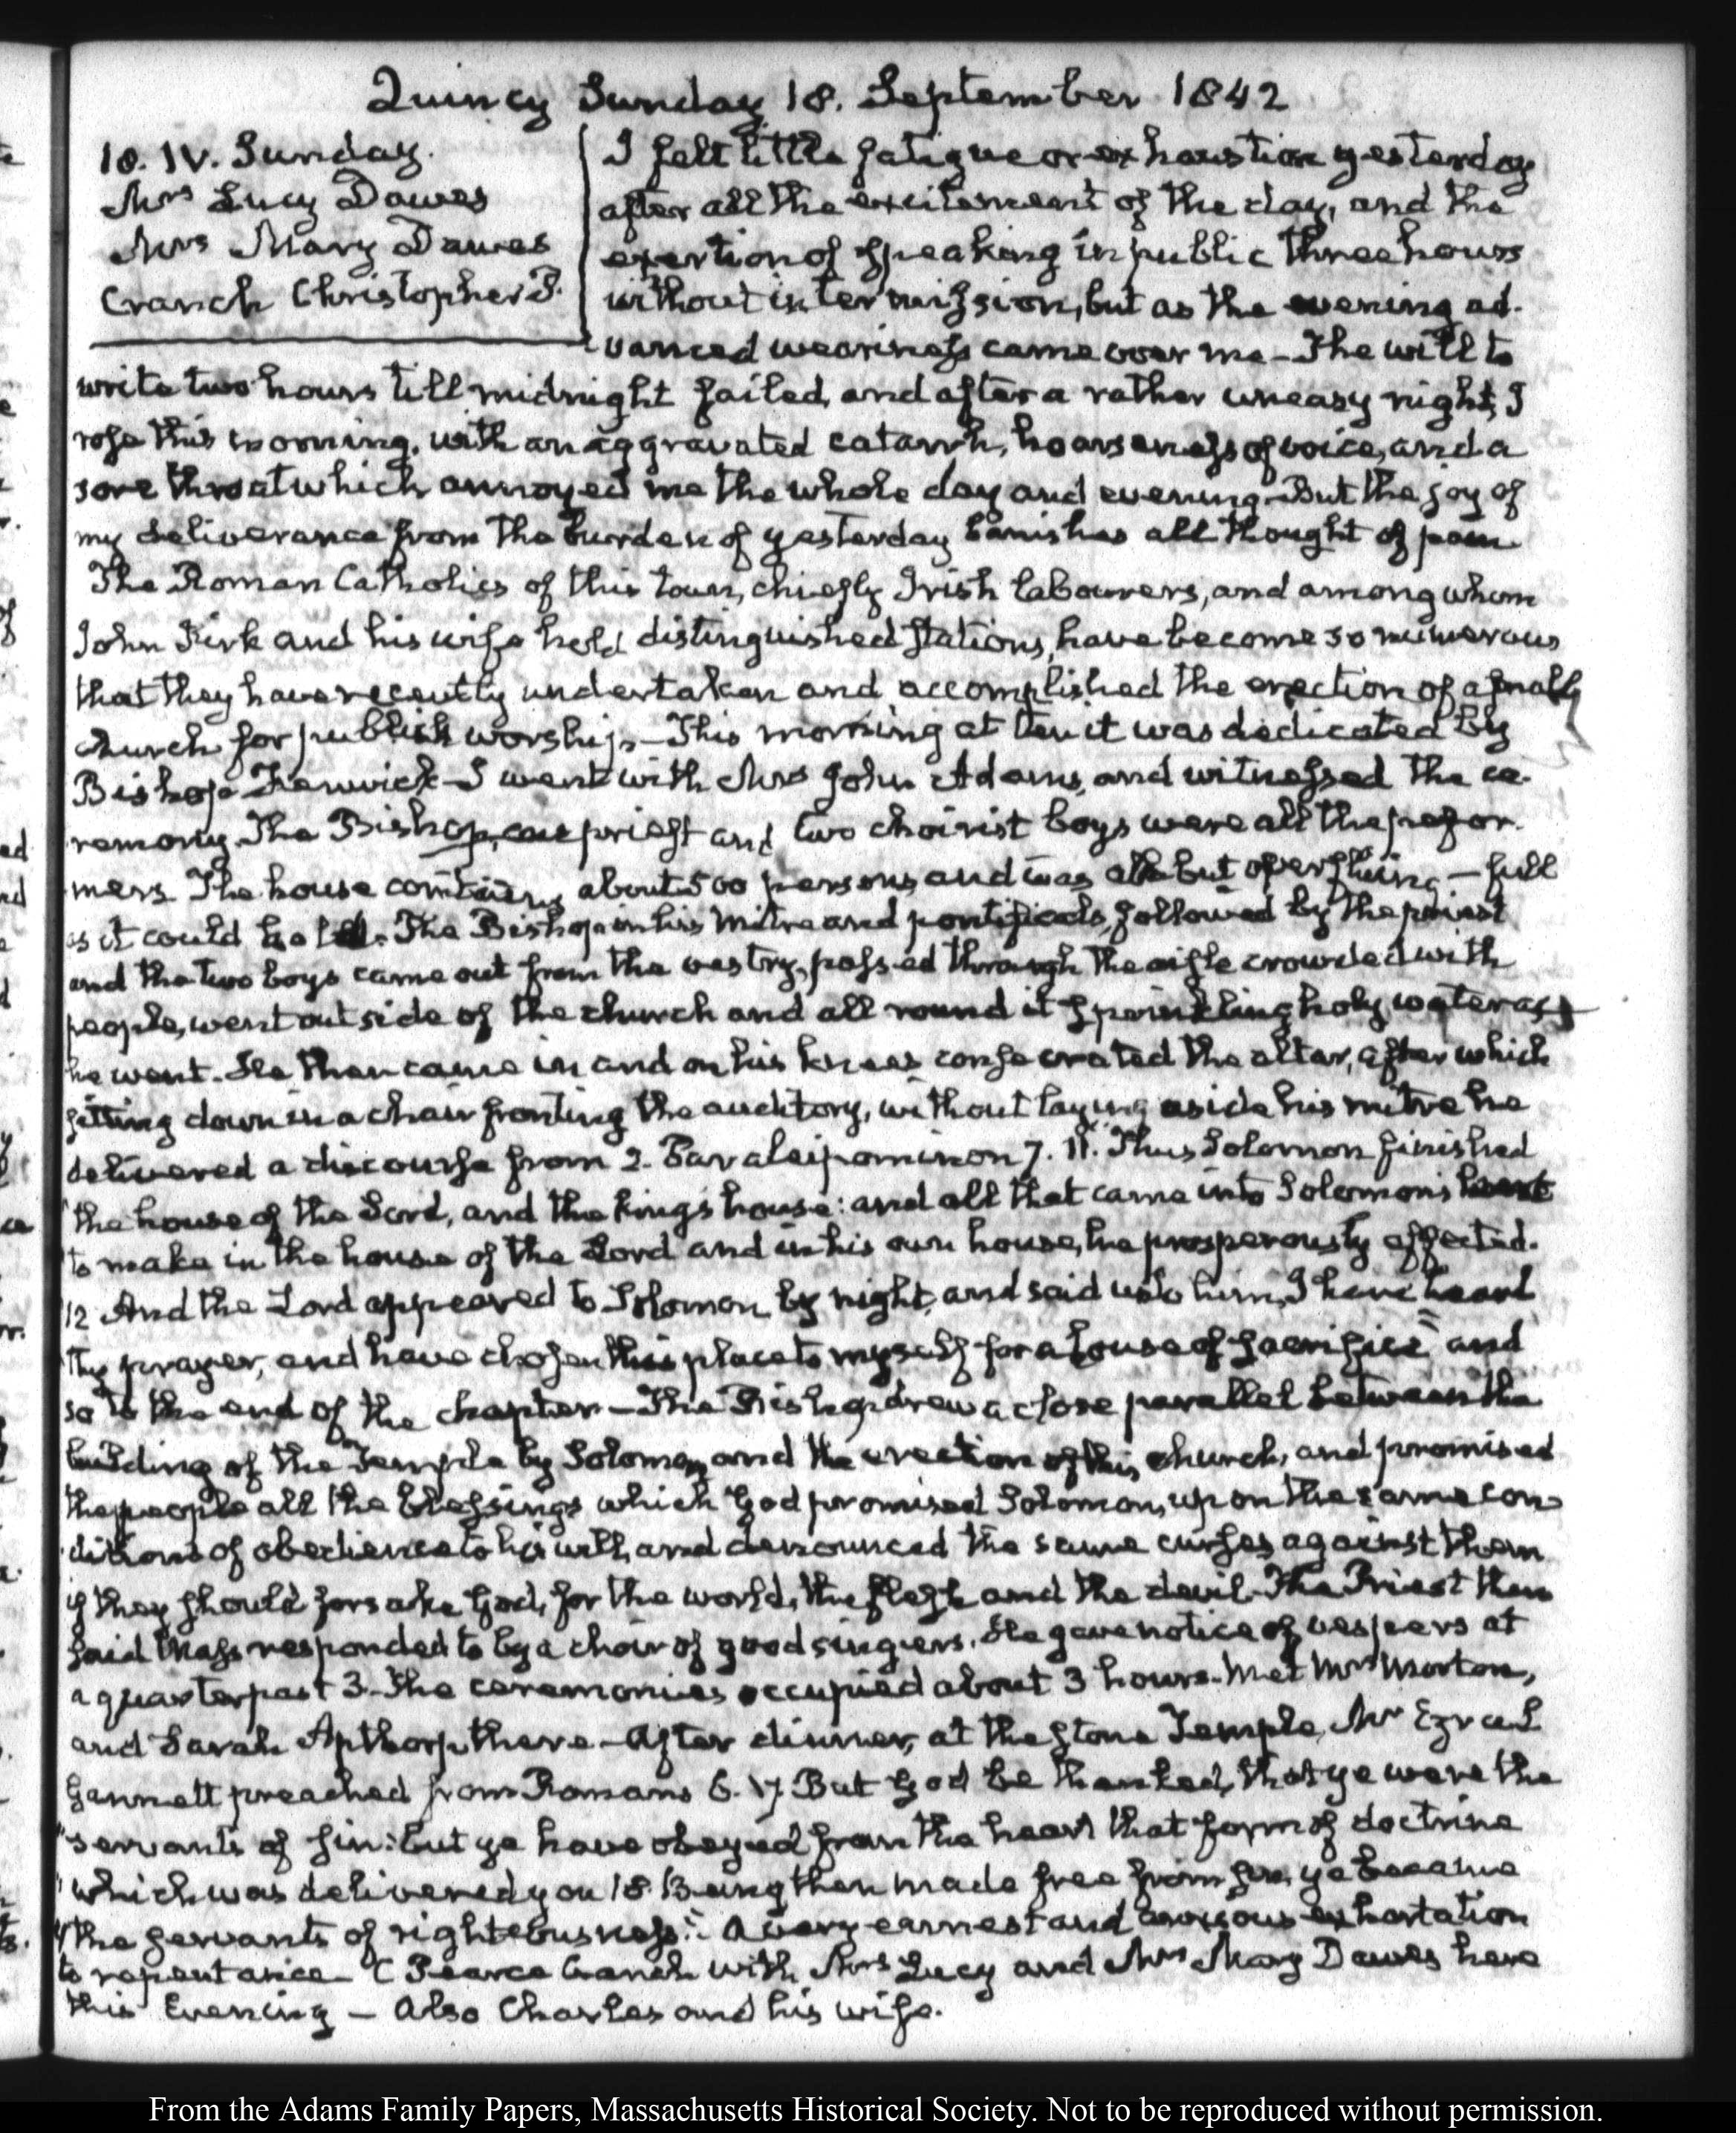 Quincy Sunday 18. September 1842
18. IV. Sunday.
Mrs Lucy Dawes
Mrs Mary Dawes
Cranch Christopher P.
I felt little fatigue or exhaustion yesterday
after all the excitement of the day, and the
exertion of speaking in public three hours
without intermission, but as the evening ad-
vanced weariness came over me – The will to
write two hours till midnight failed, and after a rather uneasy night, I
rose this morning, with an aggravated catarrh, hoarseness of voice, and a
sore throat which annoyed me the whole day and evening. But the joy of
my deliverance from the burden of yesterday banishes all thought of pain
The Roman Catholics of this town, chiefly Irish labourers, and among whom
John Kirk and his wife held distinguished stations, have become so numerous
that they have recently undertaken and accomplished the erection of a small
church for publick worship – This morning at ten it was dedicated by
Bishop Fenwick – I went with Mrs John Adams, and witnessed the ce-
remony. The Bishop, one priest and two choirist boys were all the perfor-
mers. The house contains about 500 persons and was all but overflowing – full
as it could hold. The Bishop in his mitre and pontificals, followed by the priest
and the two boys came out from the vestry, passed through the aisle crowded with
people, went outside of the church and all round it sprinkling holy water as
he went. He then came in and on his knees consecrated the altar, after which
sitting down in a chair fronting the auditory, without laying aside his mitre he
delivered a discourse from 2. Paraleipomenon 7. 11. Thus Solomon finished
"the house of the Lord, and the king's house: and all that came into Solomon's heart
"to make in the house of the Lord and in his own house, he prosperously effected.
"12 And the Lord appeared to Solomon by night, and said unto him, I have heard
"thy prayer, and have chosen this place to myself for a house of sacrifice" and
so to the end of the chapter – The Bishop drew a close parallel between the
building of the Temple by Solomon, and the erection of this church, and promised
the people all the blessings which God promised Solomon, upon the same con-
ditions of obedience to his will, and denounced the same curses against them
if they should forsake God, for the world, the flesh and the devil. The Priest then
said Mass responded to by a choir of good singers. He gave notice of vespers at
a quarter past 3. The ceremonies occupied about 3 hours. Met Mrs Morton,
and Sarah Apthorp there – After dinner, at the stone Temple, Mr Ezra S.
Gannett preached from Romans 6. 17. But God be thanked, that ye were the
"servants of sin: but ye have obeyed from the heart that form of doctrine
"which was delivered you 18. Being then made free from sin, ye became
"the servants of righteousness." A very earnest and anxious exhortation
to repentance – C Pearce Cranch with Mrs Lucy and Mrs Mary Dawes here
this Evening – Also Charles and his wife.
From the Adams Family Papers, Massachusetts Historical Society. Not to be reproduced without permission.